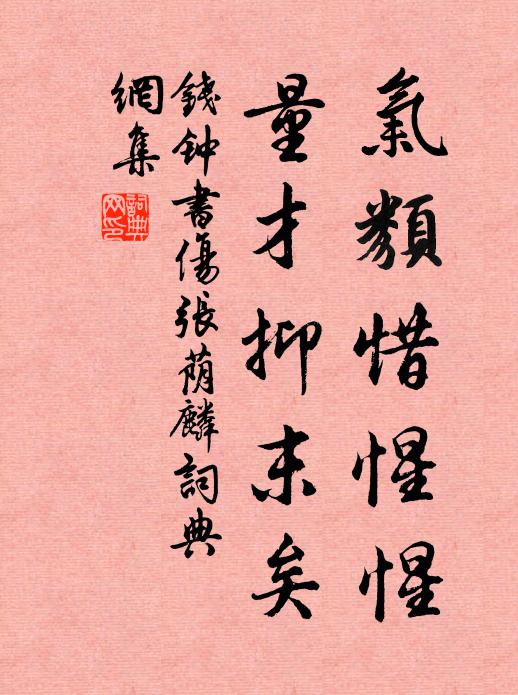 氣類惜惺惺
量才抑末矣
錢钟書傷張荫麟詞典
網集
詞典网印